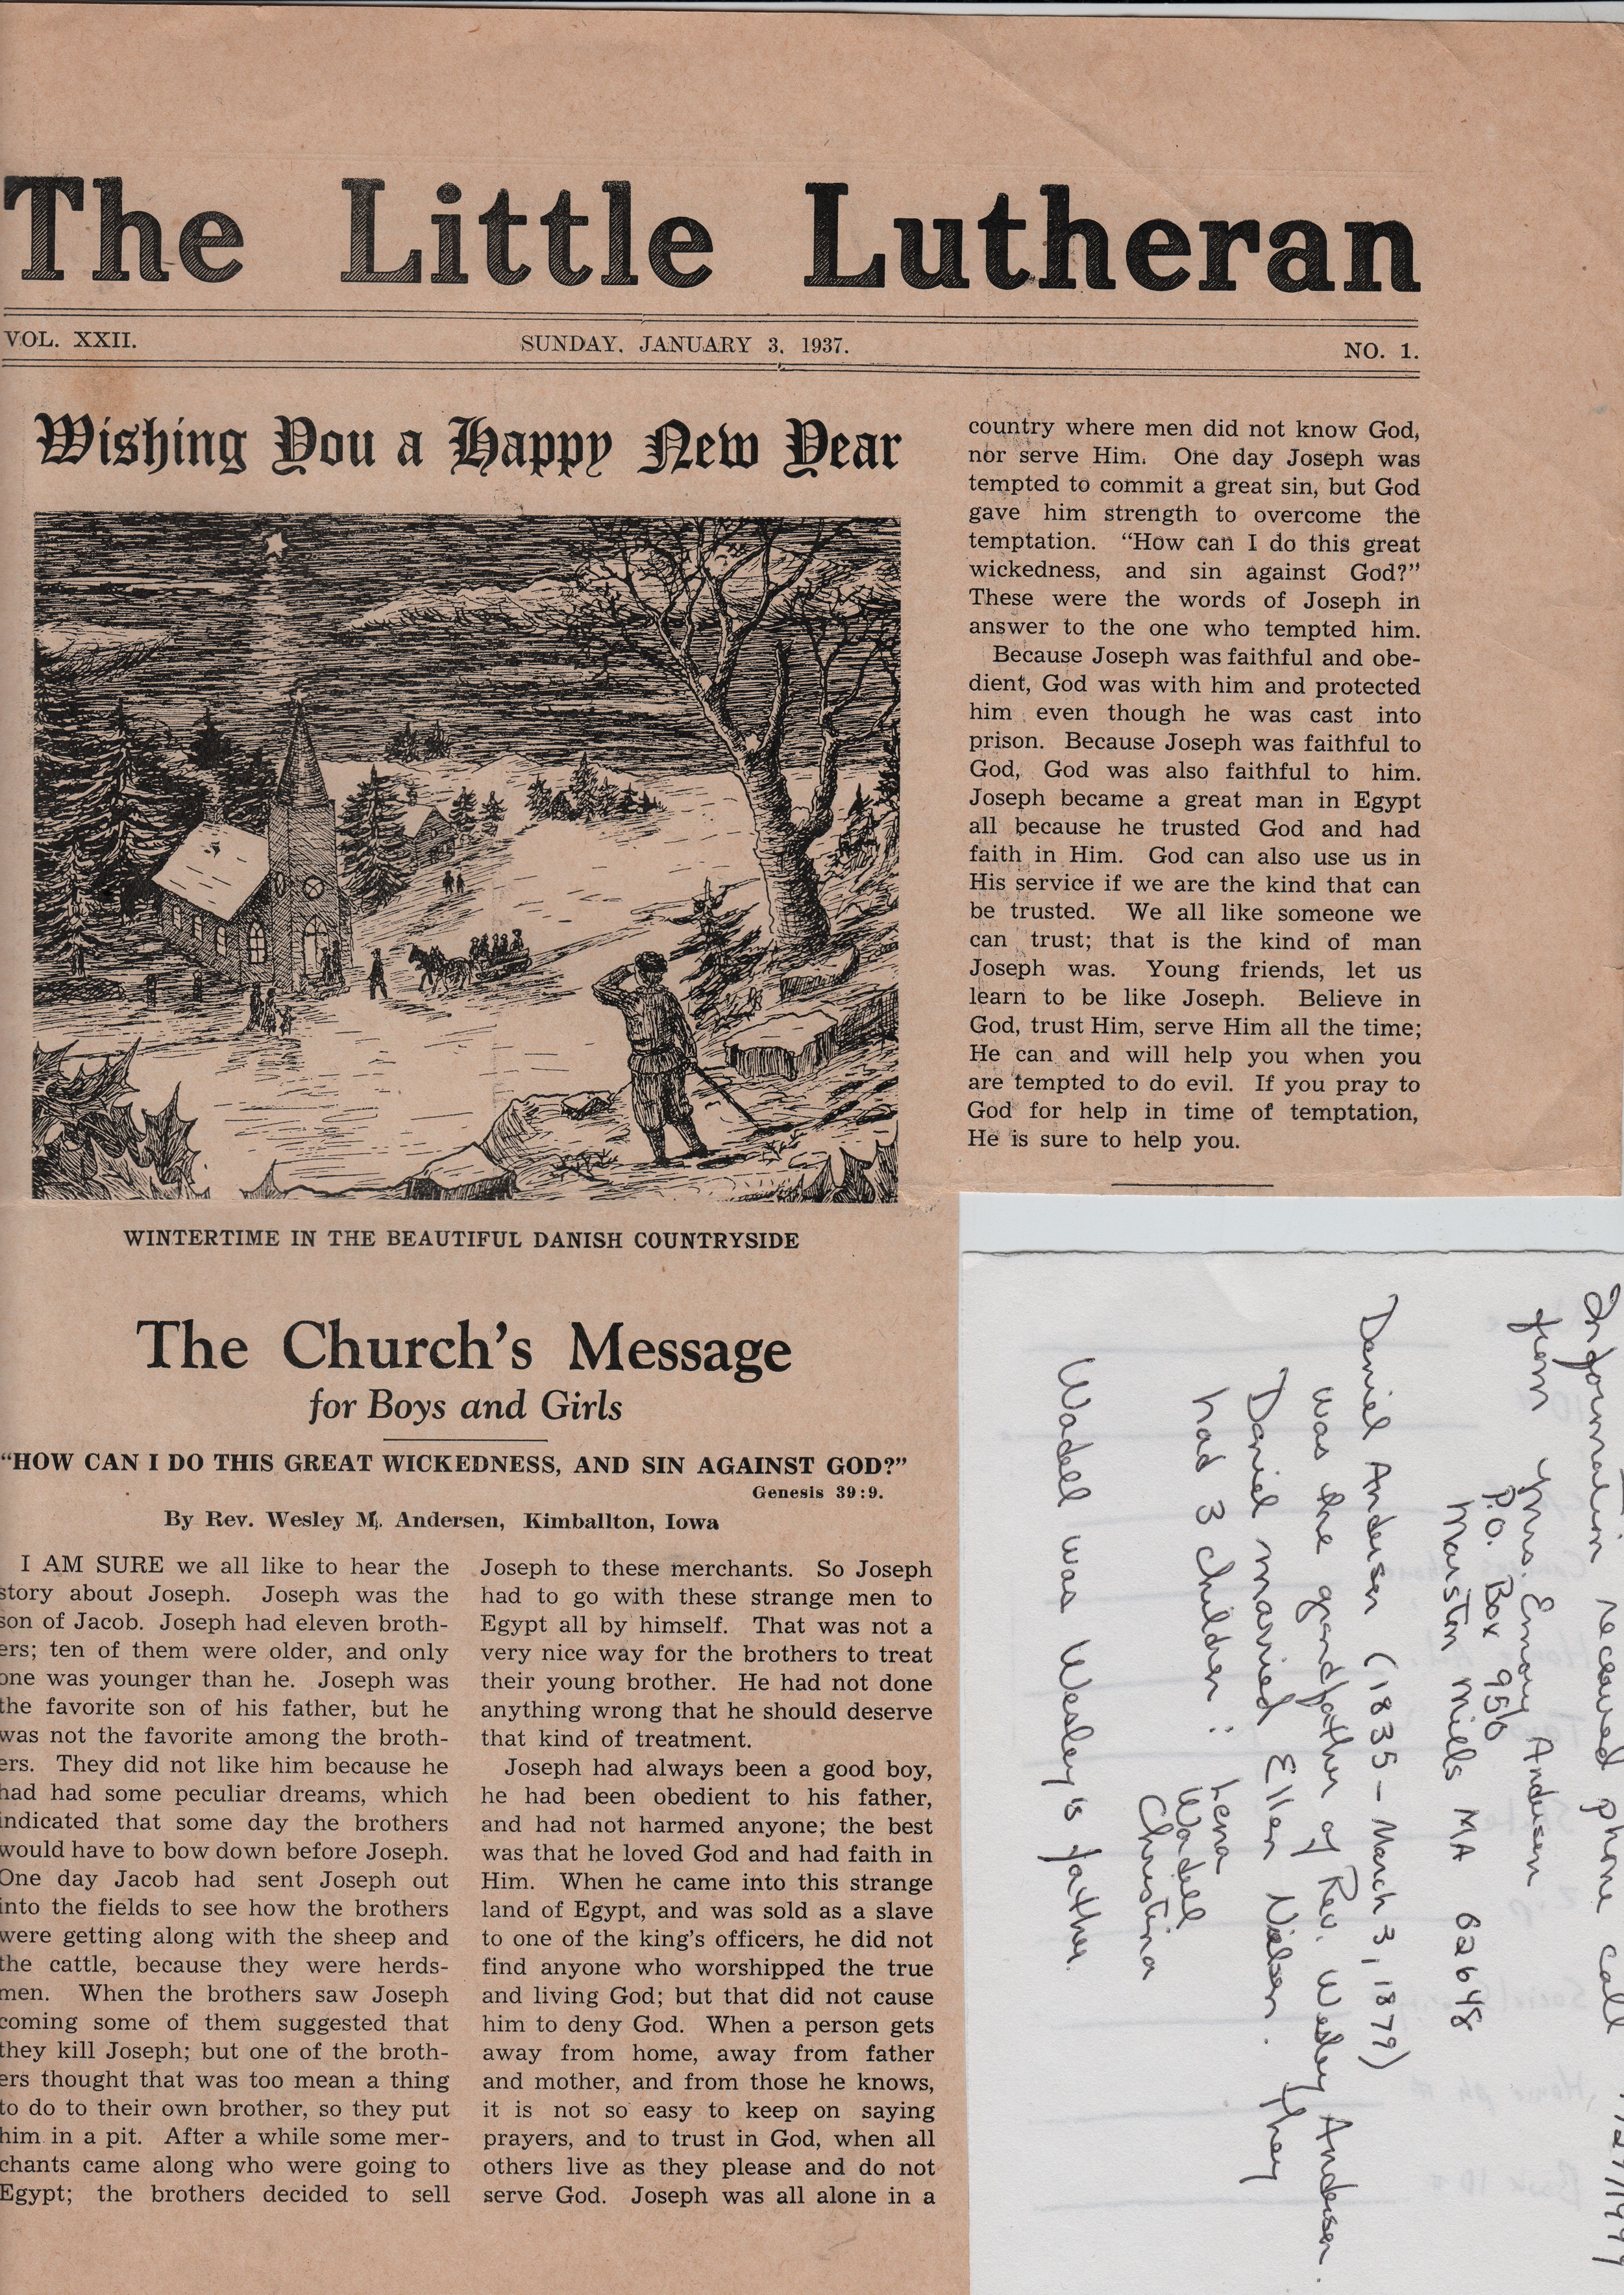 The Little Lutheran
VOL. XXII.
SUNDAY, JANUARY 3, 1937.
NO. 1.
Wishing You a Happy New Year
WINTERTIME IN THE BEAUTIFUL DANISH COUNTRYSIDE
The Church's Message
for Boys and Girls
"HOW CAN I DO THIS GREAT WICKEDNESS, AND SIN AGAINST GOD?"
Genesis 39:9.
By Rev. Wesley M. Andersen, Kimballton, Iowa
I AM SURE we all like to hear the
story about Joseph. Joseph was the
son of Jacob. Joseph had eleven broth-
ers; ten of them were older, and only
one was younger than he. Joseph was
the favorite son of his father, but he
was not the favorite among the broth-
ers. They did not like him because he
had had some peculiar dreams, which
indicated that some day the brothers
would have to bow down before Joseph.
One day Jacob had sent Joseph out
into the fields to see how the brothers
were getting along with the sheep and
the cattle, because they were herds-
men. When the brothers saw Joseph
coming some of them suggested that
they kill Joseph; but one of the broth-
ers thought that was too mean a thing
to do to their own brother, so they put
him in a pit. After a while some mer-
chants came along who were going to
Egypt; the brothers decided to sell
Joseph to these merchants. So Joseph
had to go with these strange men to
Egypt all by himself. That was not a
very nice way for the brothers to treat
their young brother. He had not done
anything wrong that he should deserve
that kind of treatment.
Joseph had always been a good boy,
he had been obedient to his father,
and had not harmed anyone; the best
was that he loved God and had faith in
Him. When he came into this strange
land of Egypt, and was sold as a slave
to one of the king's officers, he did not
find anyone who worshipped the true
and living God; but that did not cause
him to deny God. When a person gets
away from home, away from father
and mother, and from those he knows,
it is not so easy to keep on saying
prayers, and to trust in God, when all
others live as they please and do not
serve God. Joseph was all alone in a
country where men did not know God,
nor serve Him. One day Joseph was
tempted to commit a great sin, but God
gave him strength to overcome the
temptation. "How can I do this great
wickedness, and sin against God?"
These were the words of Joseph in
answer to the one who tempted him.
Because Joseph was faithful and obe-
dient, God was with him and protected
him even though he was cast into
prison. Because Joseph was faithful to
God, God was also faithful to him.
Joseph became a great man in Egypt
all because he trusted God and had
faith in Him. God can also use us in
His service if we are the kind that can
be trusted. We all like someone we
can trust; that is the kind of man
Joseph was. Young friends, let us
learn to be like Joseph. Believe in
God, trust Him, serve Him all the time;
He can and will help you when you
are tempted to do evil. If you pray to
God for help in time of temptation,
He is sure to help you.
Information received phone call
from Mrs. Emory Andersen
P.O. Box 950
Marston Mills MA 02648
Daniel Andersen (1835 - March 3, 1879)
was the grandfather of Rev. Wesley Andersen.
Daniel married Ellen Nielsen. They
had 3 children: Lena
Wadell
Christina
Wadell was Wesley's father.